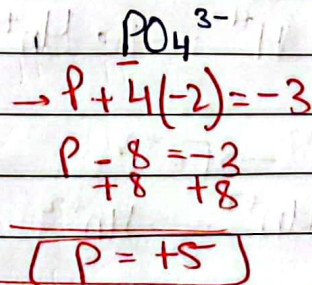 PO₄³⁻
→ P + 4(-2) = -3
P - 8 = -3
+8 +8
P = +5